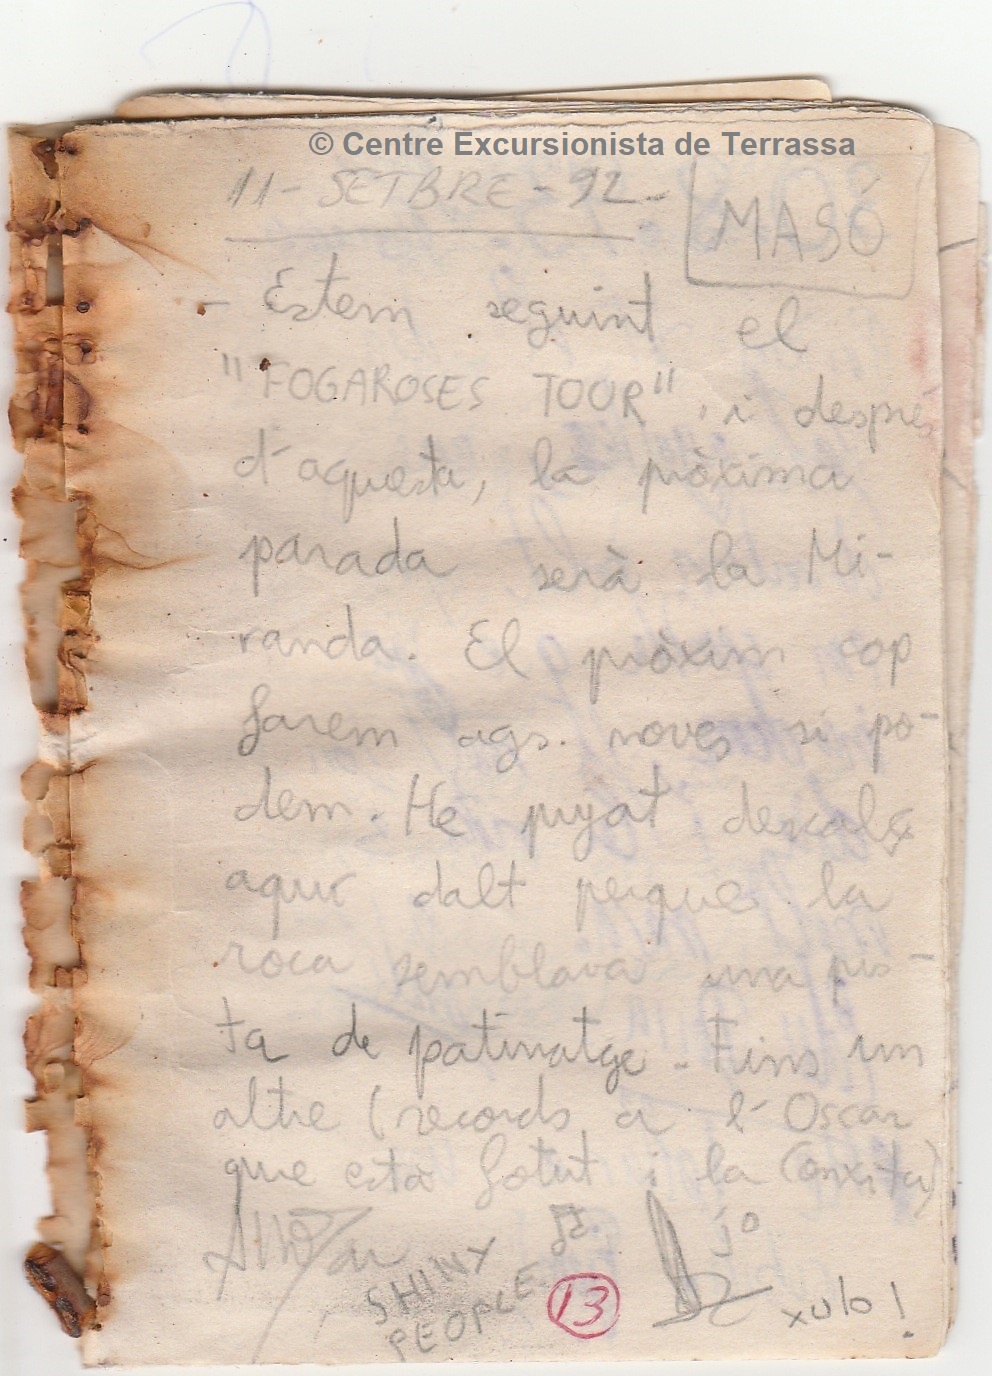 © Centre Excursionista de Terrassa
11 - SETBRE - 92 - MASÓ
- Estem seguint el
"FOGAROSES TOUR", i després
d'aquesta, la pròxima
parada serà la Mi-
randa. El pròxim cop
farem ags. noves si po-
dem. He pujat descalç
aquí dalt perque la
roca semblava una pis-
ta de patinatge. Fins un
altre (records a l'Oscar
que està fotut i la Conxita)
jo
SHINY
PEOPLE
13
xulo!